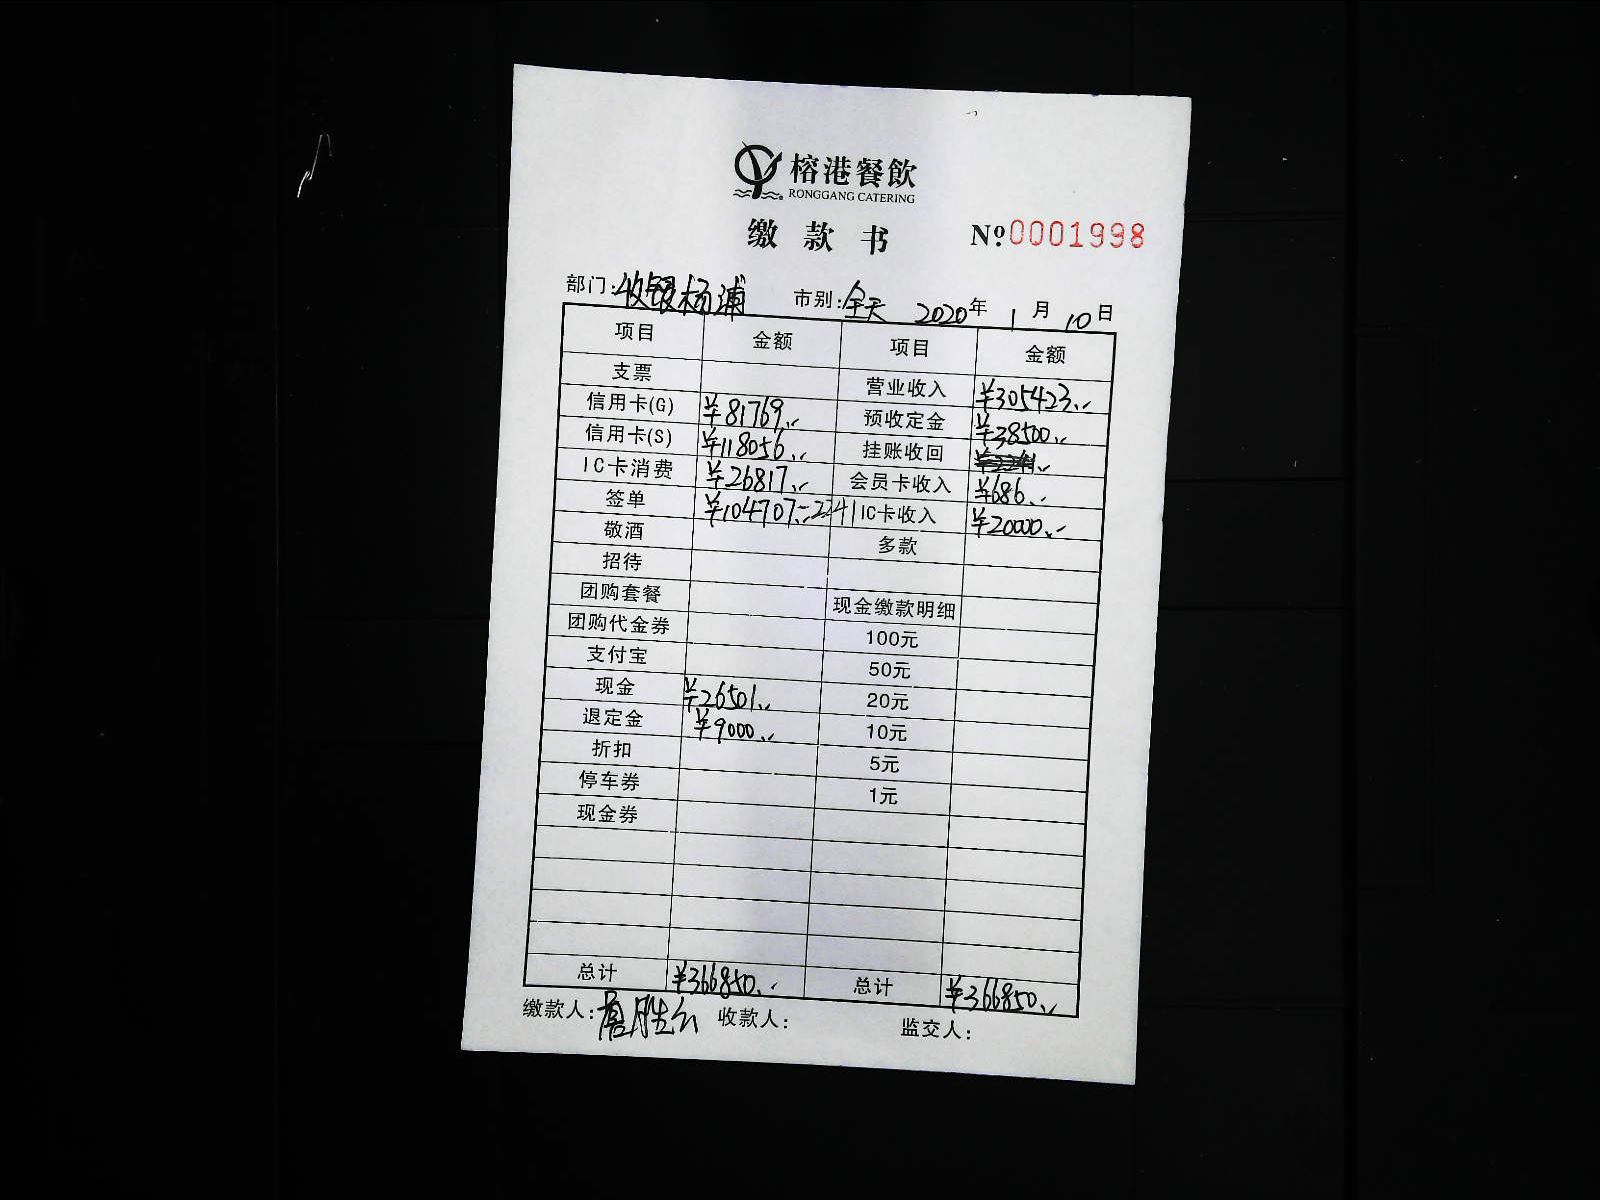 榕港餐飲
RONGGANG CATERING
缴款书 Nº 0001998
部门: 收银杨浦 市别: 全天 2020年 1月 10日
项目 金额 项目 金额
支票 营业收入 ¥305423.-
信用卡(G) ¥81769.- 预收定金 ¥38500.-
信用卡(S) ¥118056.- 挂账收回
IC卡消费 ¥26817.- 会员卡收入 ¥686.-
签单 ¥104707.-2241 IC卡收入 ¥20000.-
敬酒 多款
招待
团购套餐 现金缴款明细
团购代金券 100元
支付宝 50元
现金 ¥26501.- 20元
退定金 ¥9000.- 10元
折扣 5元
停车券 1元
现金券
总计 ¥366850.- 总计 ¥366850.-
缴款人: 胜云 收款人: 监交人: